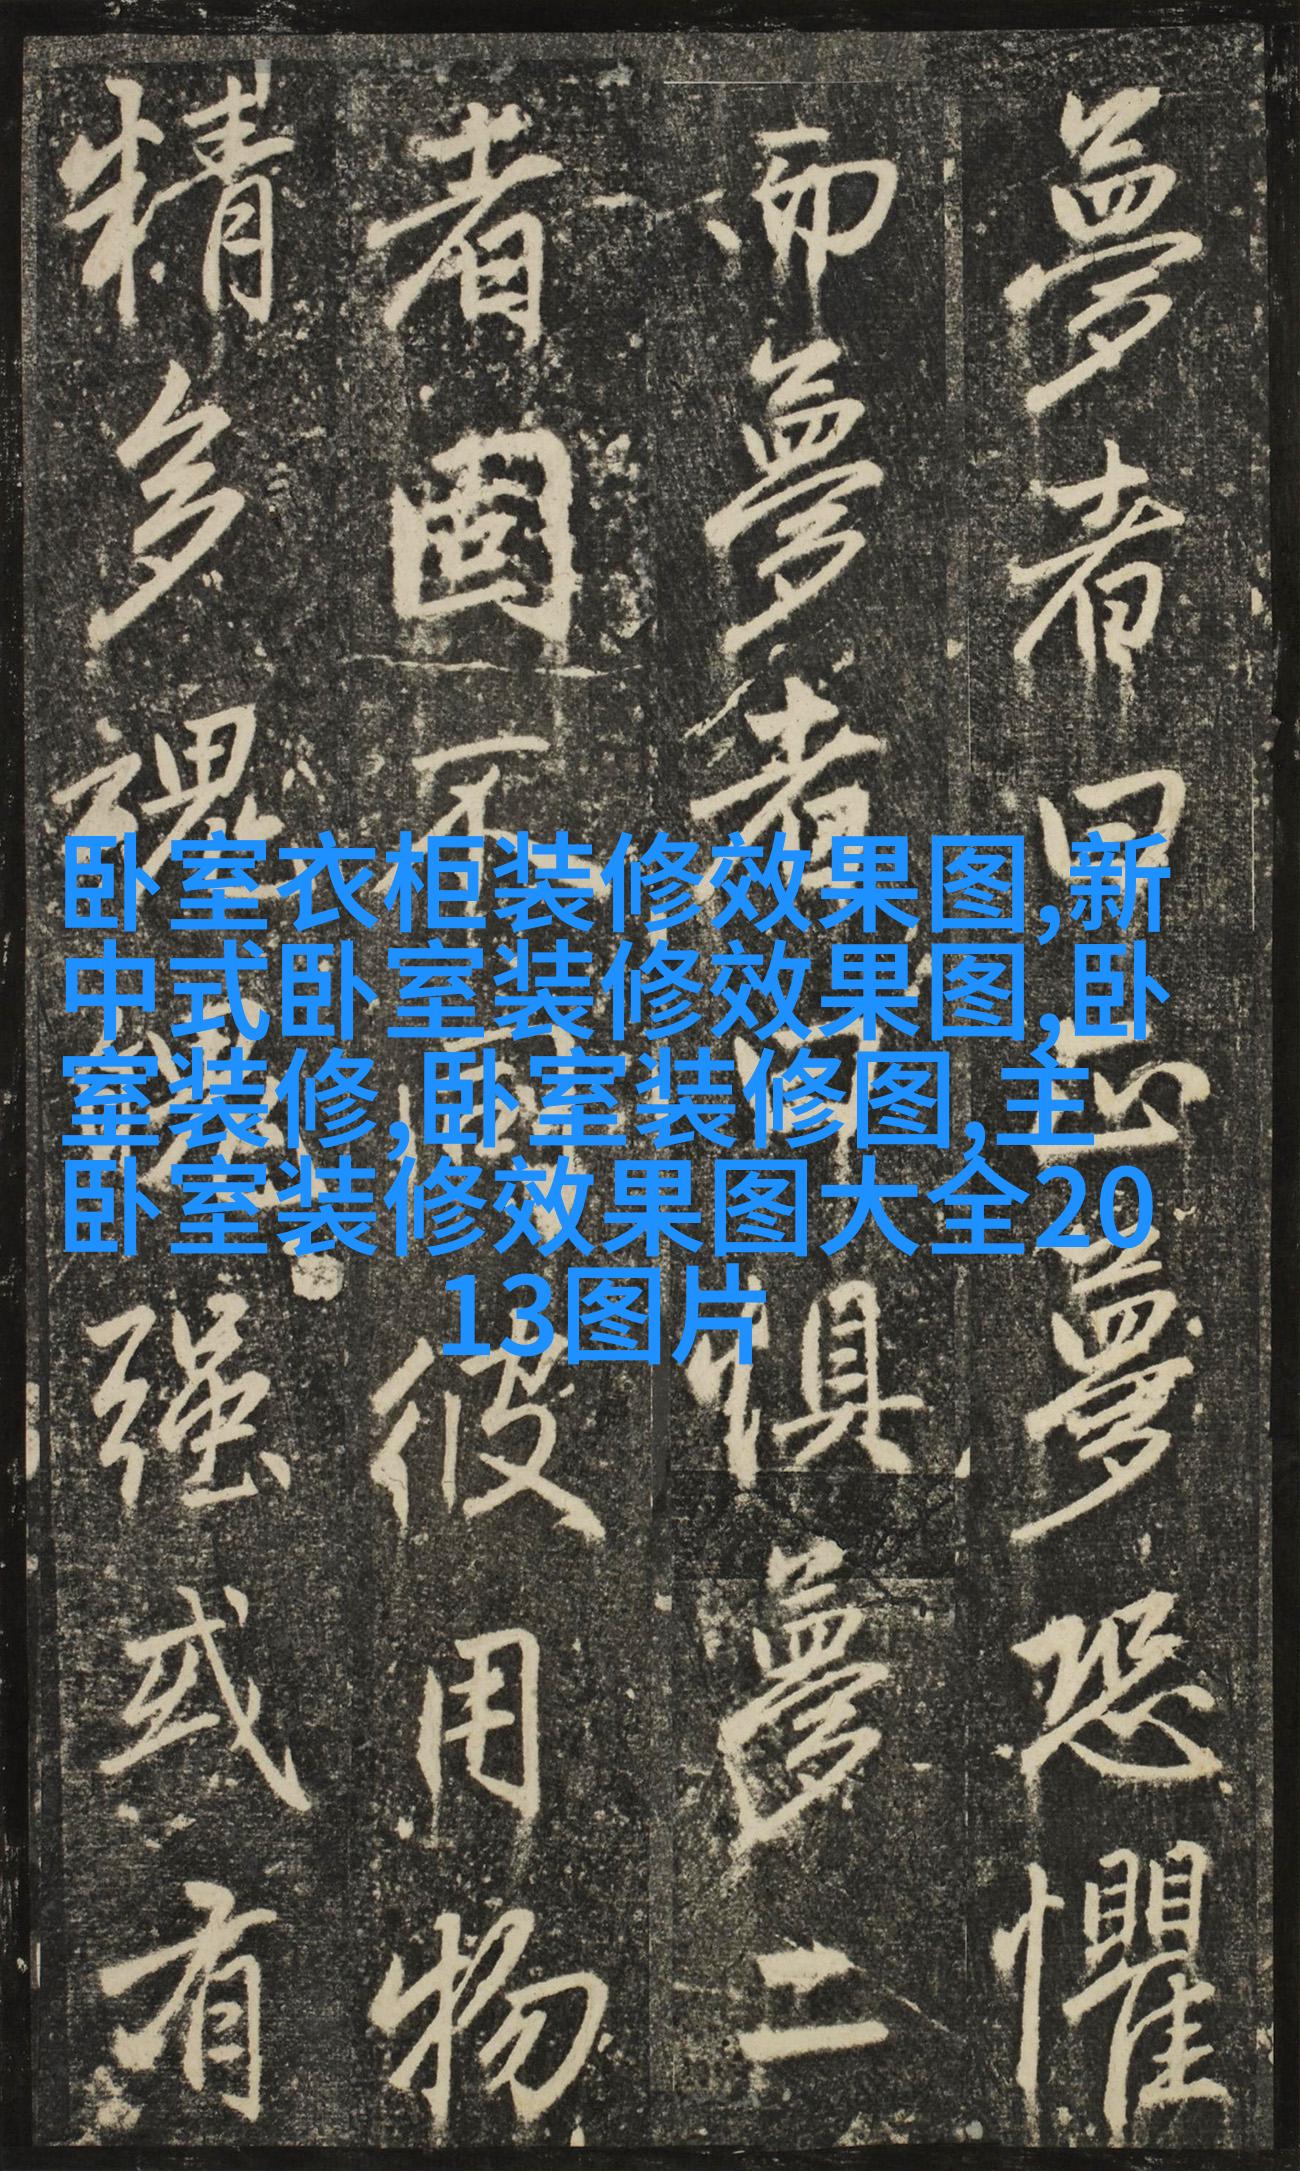 夢者曰正夢恐懼
而夢者曰惧夢二
者固不彼用物
精多魂魄强或有
卧室衣柜装修效果图,新
中式卧室装修效果图,卧
室装修,卧室装修图,主
卧室装修效果图大全20
13图片